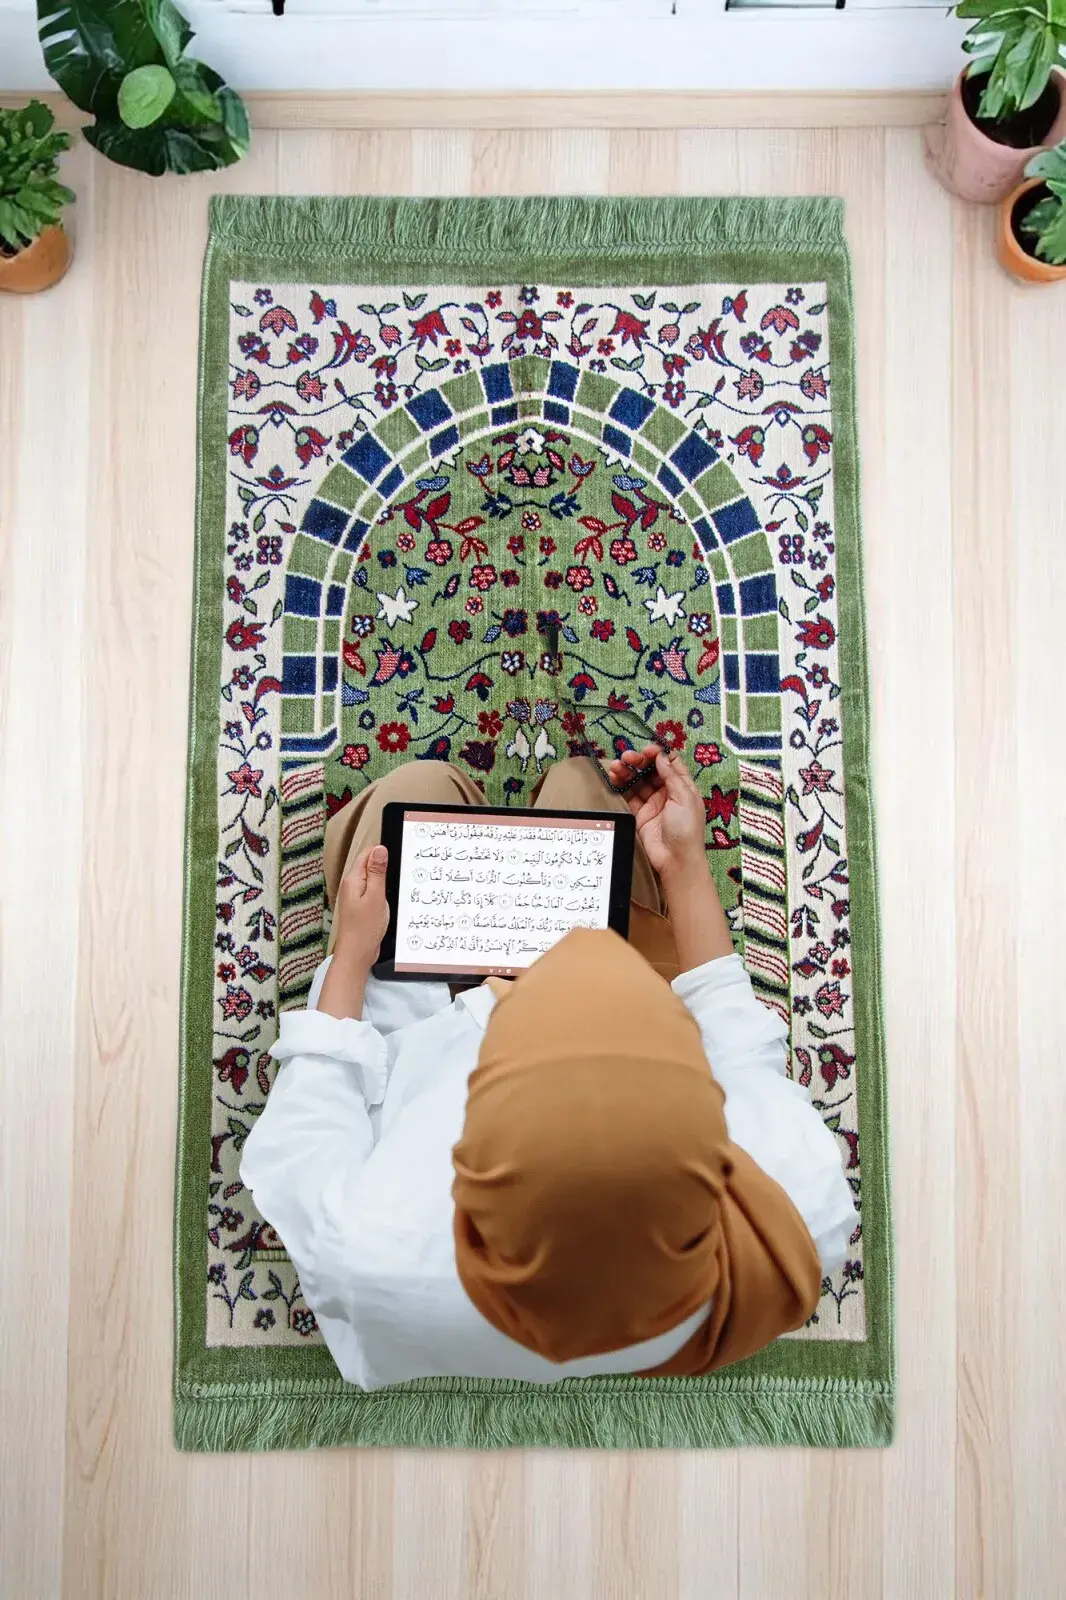 ١٥ وَأَمَّآ إِذَا مَا ٱبْتَلَىٰهُ فَقَدَرَ عَلَيْهِ رِزْقَهُۥ فَيَقُولُ رَبِّىٓ أَهَٰنَنِ ١٦
كَلَّا ۖ بَل لَّا تُكْرِمُونَ ٱلْيَتِيمَ ١٧ وَلَا تَحَٰٓضُّونَ عَلَىٰ طَعَامِ
ٱلْمِسْكِينِ ١٨ وَتَأْكُلُونَ ٱلتُّرَاثَ أَكْلًا لَّمًّا ١٩
وَتُحِبُّونَ ٱلْمَالَ حُبًّا جَمًّا ٢٠ كَلَّآ إِذَا دُكَّتِ ٱلْأَرْضُ دَكًّا
وَجَآءَ رَبُّكَ وَٱلْمَلَكُ صَفًّا صَفًّا ٢٢ وَجِا۟ىٓءَ يَوْمَئِذٍۭ
يَتَذَكَّرُ ٱلْإِنسَٰنُ وَأَنَّىٰ لَهُ ٱلذِّكْرَىٰ ٢٣